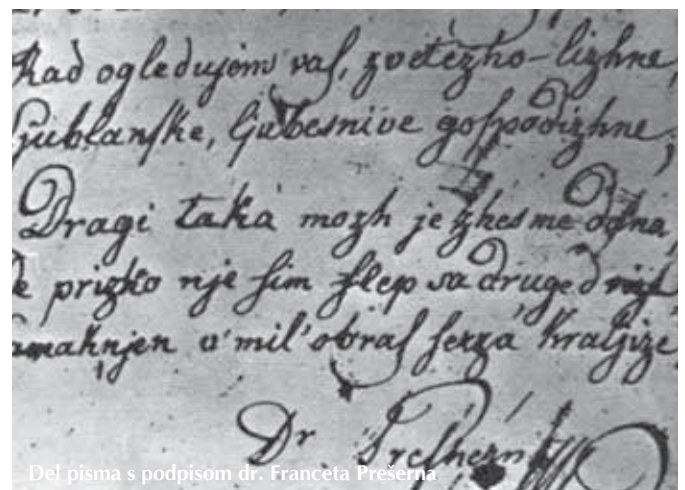 Rad ogledujem vaſ, zvetezho-lizhne,
Ljublanſke, ljubesnive goſpodizhne;
Dragi taká mozh je zhes me dána,
prizho nje ſim ſlep sa druge
samaknjen v' mil' obras ſerza kraljize
Dr Preſhern
Del pisma s podpisom dr. Franceta Prešerna